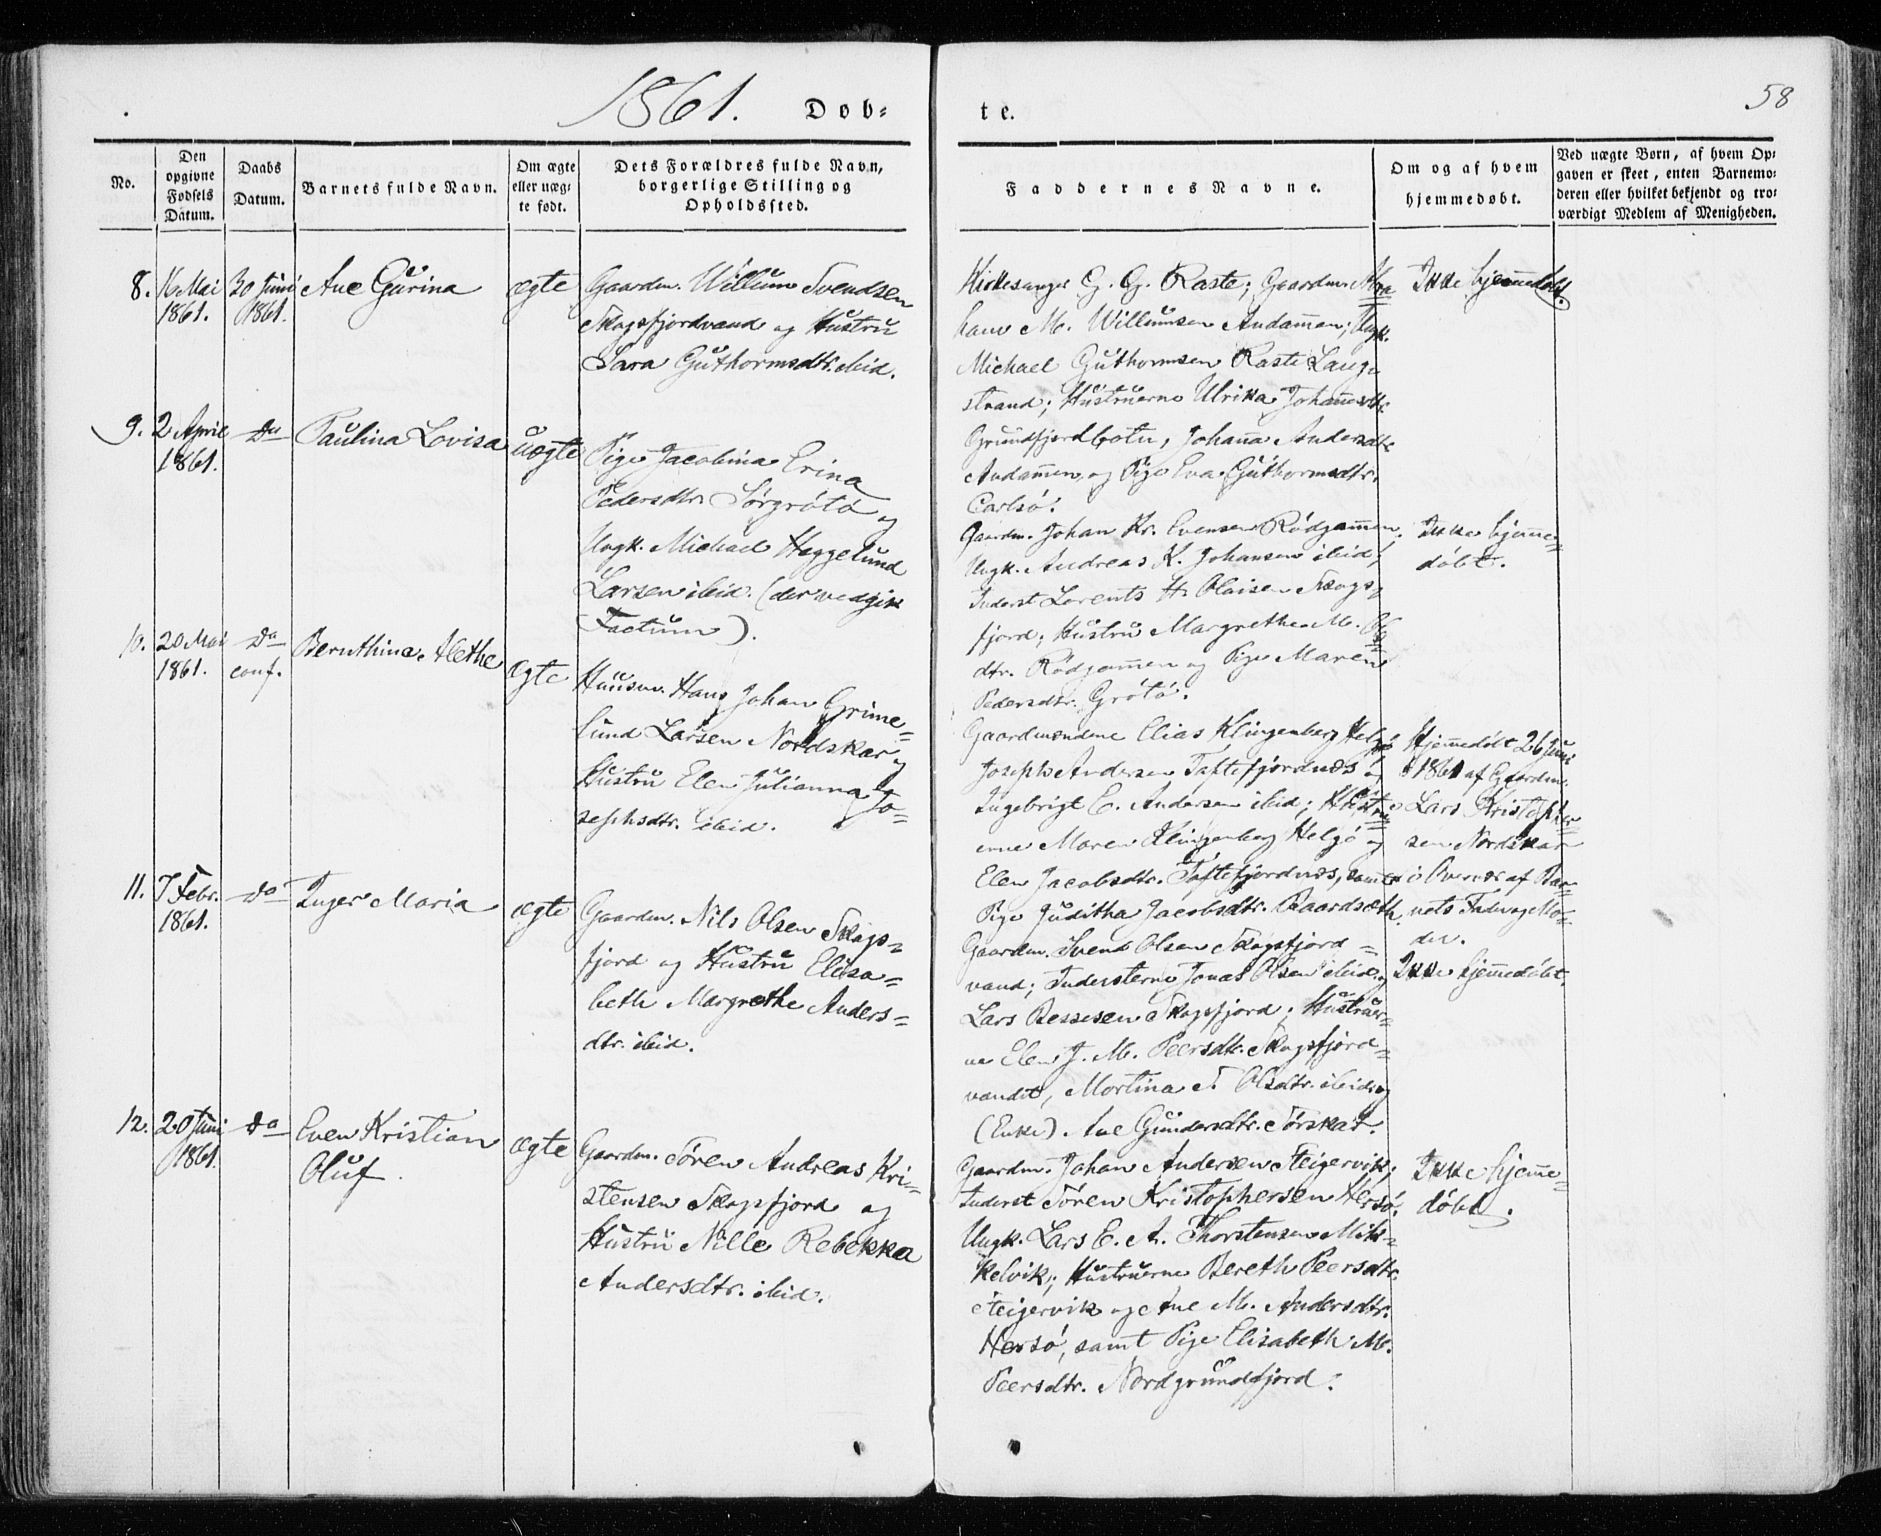 1861.
Døb-
te.
58
No.
Den
opgivne
Fødsels
Datum.
Daabs
Datum.
Barnets fulde Navn.
Om ægte
eller uæg-
te født.
Dets Forældres fulde Navn,
borgerlige Stilling og
Opholdssted.
Faddernes Navne.
Om og af hvem
hjemmedøbt.
Ved uægte Børn, af hvem Op-
gaven er skeet, enten Barnemo-
deren eller hvilket bekjendt og tro-
værdigt Medlem af Menigheden.
8.
16 Mai
1861.
30 Juni
1861.
Ane Gurina
ægte
Gaardm. Willum Svendsen
Skogsfjordvand og Hustru
Sara Guthormsdtr. ibid.
Kirkesanger G. G. Raste; Gaardm. Abra
ham M. Willumsen Andamen; Ungk.
Michael Guthormsen Raste Lang-
strand; Hustruerne Ulrika Johansdtr.
Grundfjordbotn, Johanna Andersdtr.
Andamen og Pige Eva Guthormsdtr.
Carlsö.
Ikke hjemmedøbt.
9.
2 April
1861.
Do
Paulina Lovisa
uægte
Pige Jacobina Erina
Pedersdtr. Sörgrötö og
Ungk. Michael Heggelund
Larsen ibid. (der vedgik
Factum).
Gaardm. Johan Kr. Evensen Rödgammen.
Ungk. Andreas K. Johansen ibid;
Inderst Lorents H. Olaisen Skogs-
fjord; Hustru Margrethe M.
dtr. Rödgammen og Pige Maren
Pedersdtr. Grötö.
Ikke hjemme-
døbt.
10.
20 Mai
1861.
Do
conf.
Bernthina Alethe
ægte
Huusm. Hans Johan Grime-
lund Larsen Nordskar og
Hustru Elen Julianna Jo-
sephsdtr. ibid.
Gaardmændene Elias Klingenberg Helgö
Joseph Andersen Toftefjordnæs og
Ingebrigt E. Andersen ibid; Hustru-
erne Maren Klingenberg Helgö og
Elen Jacobsdtr. Toftefjordnæs, samt
Pige Juditha Jacobsdtr. Baardsæth.
Hjemmedøbt 26 Juni
1861 af Gaardm.
Lars Kristopher-
sen Nordskar
i Overvær af Bar-
nets Fader og Mo-
der.
11.
7 Febr.
1861.
Do
Inger Maria
ægte
Gaardm. Nils Olsen Skogs-
fjord og Hustru Elisa-
beth Margrethe Anders-
dtr. ibid.
Gaardm. Svend Olsen Skogsfjord-
vand; Indersterne Jonas Olsen ibid. og
Lars Bessesen Skogsfjord; Hustruer-
ne Elen J. M. Peersdtr. Skogsfjord-
vandet, Mortina T Olsdtr. ibid og
(Enke) Ane Gundersdtr. Torskar.
Ikke hjemmedøbt.
12.
20 Juni
1861.
Do
Even Kristian
Oluf
ægte
Gaardm. Sören Andreas Kri-
stensen Skogsfjord og
Hustru Nille Rebekka
Andersdtr. ibid.
Gaardm. Johan Andersen Steigervik;
Inderst Sören Kristophersen Hersö.
Ungk. Lars E. A. Thorstensen Mik-
kelvik; Hustruerne Bereth Peersdtr.
Steigervik og Ane M. Andersdtr.
Hersö, samt Pige Elisabeth M.
Peersdtr. Nordgrundfjord.
Ikke hjemme-
døbt.